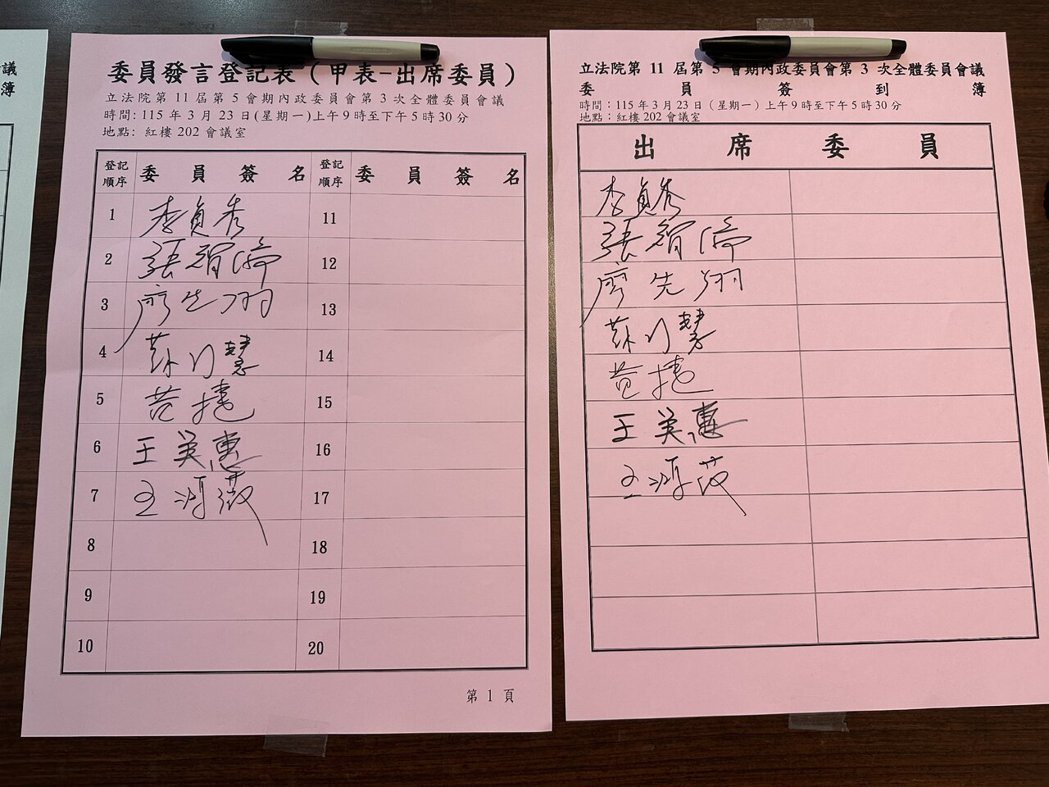 議
簿
委員發言登記表（甲表-出席委員）
立法院第11屆第5會期內政委員會第3次全體委員會議
時間：115年3月23日(星期一)上午9時至下午5時30分
地點：紅樓202會議室
登記順序 委員簽名 登記順序 委員簽名
1 李貞秀 11
2 張智倫 12
3 廖先翔 13
4 蘇巧慧 14
5 黃捷 15
6 王美惠 16
7 王鴻薇 17
8 18
9 19
10 20
第 1 頁
立法院第11屆第5會期內政委員會第3次全體委員會議
委員簽到簿
時間：115年3月23日（星期一）上午9時至下午5時30分
地點：紅樓202會議室
出席委員
李貞秀
張智倫
廖先翔
蘇巧慧
黃捷
王美惠
王鴻薇